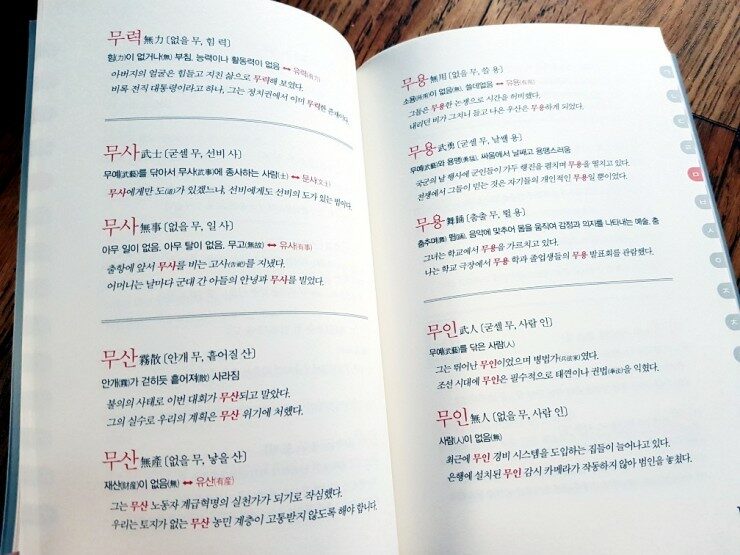 무력 無力 [없을 무, 힘 력]
힘(力)이 없거나(無) 부침. 능력이나 활동력이 없음 ↔ 유력(有力)
아버지의 얼굴은 힘들고 지친 삶으로 무력해 보였다.
비록 전직 대통령이라고 하나, 그는 정치권에서 이미 무력한 존재이다.
무사 武士 [굳셀 무, 선비 사]
무예(武藝)를 닦아서 무사(武事)에 종사하는 사람(士) ↔ 문사(文士)
무사에게만 도(道)가 있겠느냐, 선비에게도 선비의 도가 있는 법이다.
무사 無事 [없을 무, 일 사]
아무 일이 없음. 아무 탈이 없음. 무고(無故) ↔ 유사(有事)
출항에 앞서 무사를 비는 고사(告祀)를 지냈다.
어머니는 날마다 군대 간 아들의 안녕과 무사를 빌었다.
무산 霧散 [안개 무, 흩어질 산]
안개(霧)가 걷히듯 흩어져(散) 사라짐
불의의 사태로 이번 대회가 무산되고 말았다.
그의 실수로 우리의 계획은 무산 위기에 처했다.
무산 無産 [없을 무, 낳을 산]
재산(財産)이 없음(無) ↔ 유산(有産)
그는 무산 노동자 계급혁명의 실천가가 되기로 작심했다.
우리는 토지가 없는 무산 농민 계층이 고통받지 않도록 해야 합니다.
무용 無用 [없을 무, 쓸 용]
소용(所用)이 없음(無). 쓸데없음 ↔ 유용(有用)
그들은 무용한 논쟁으로 시간을 허비했다.
내리던 비가 그치니 들고 나온 우산은 무용하게 되었다.
무용 武勇 [굳셀 무, 날쌜 용]
무예(武藝)와 용맹(勇猛). 싸움에서 날쌔고 용맹스러움
국군의 날 행사에 군인들이 가두 행진을 펼치며 무용을 떨치고 있다.
전쟁에서 그들이 믿는 것은 자기들의 개인적인 무용일 뿐이었다.
무용 舞踊 [춤출 무, 뛸 용]
춤추며(舞) 뜀(踊). 음악에 맞추어 몸을 움직여 감정과 의지를 나타내는 예술. 춤
그녀는 학교에서 무용을 가르치고 있다.
나는 학교 극장에서 무용 학과 졸업생들의 무용 발표회를 관람했다.
무인 武人 [굳셀 무, 사람 인]
무예(武藝)를 닦은 사람(人)
그는 뛰어난 무인이었으며 병법가(兵法家)였다.
조선 시대에 무인은 필수적으로 태견이나 권법(拳法)을 익혔다.
무인 無人 [없을 무, 사람 인]
사람(人)이 없음(無)
최근에 무인 경비 시스템을 도입하는 집들이 늘어나고 있다.
은행에 설치된 무인 감시 카메라가 작동하지 않아 범인을 놓쳤다.
ㅁ
ㅂ
ㅅ
ㅇ
ㅈ